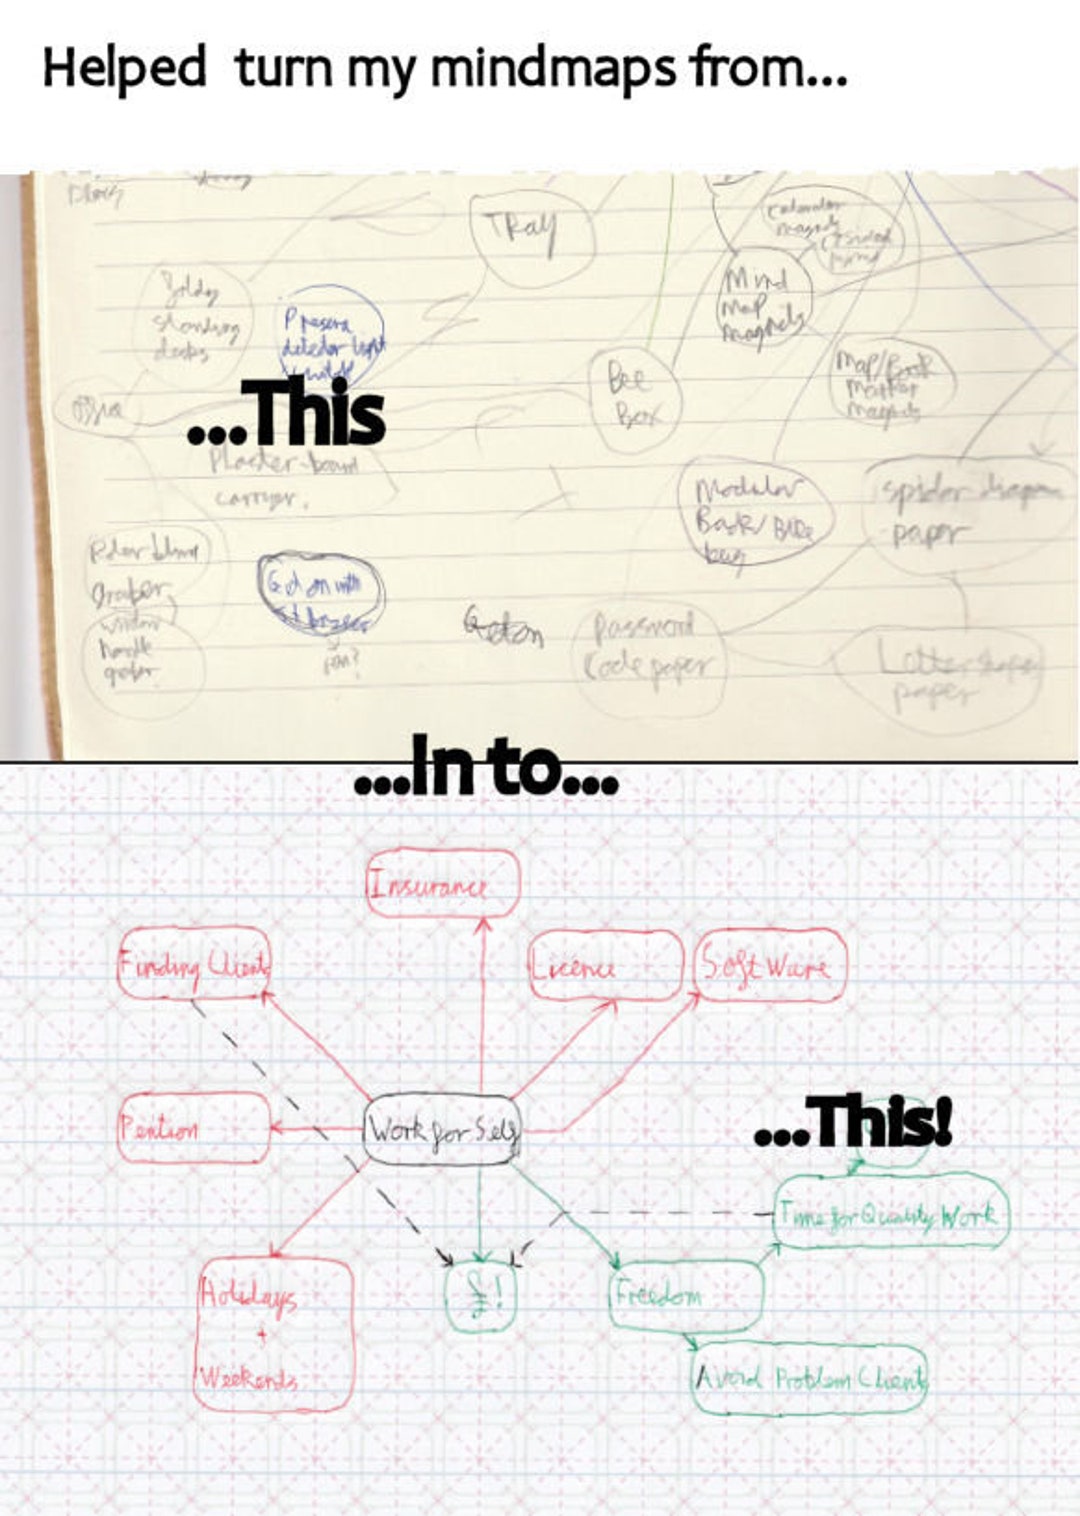 Helped turn my mindmaps from...
Diary
TRay
Calendar
magnets
Mind
Map
Magnets
standing
desks
Presence
detector light
Map/Book
Marker
Magnets
Bee
Box
office
...This
Plaster-board
carryer.
Modular
Back/Bike
bag
spider diagram
paper
grabber
window
handle
graber
Get on with
fan?
Get on
Password
Code paper
Letter shaped
paper
...In to...
Insurance
Finding Clients
Licence
Software
Pention
Work for Self
...This!
Time for Quality Work
Holidays
+
Weekends
£!
Freedom
Avoid Problem Clients